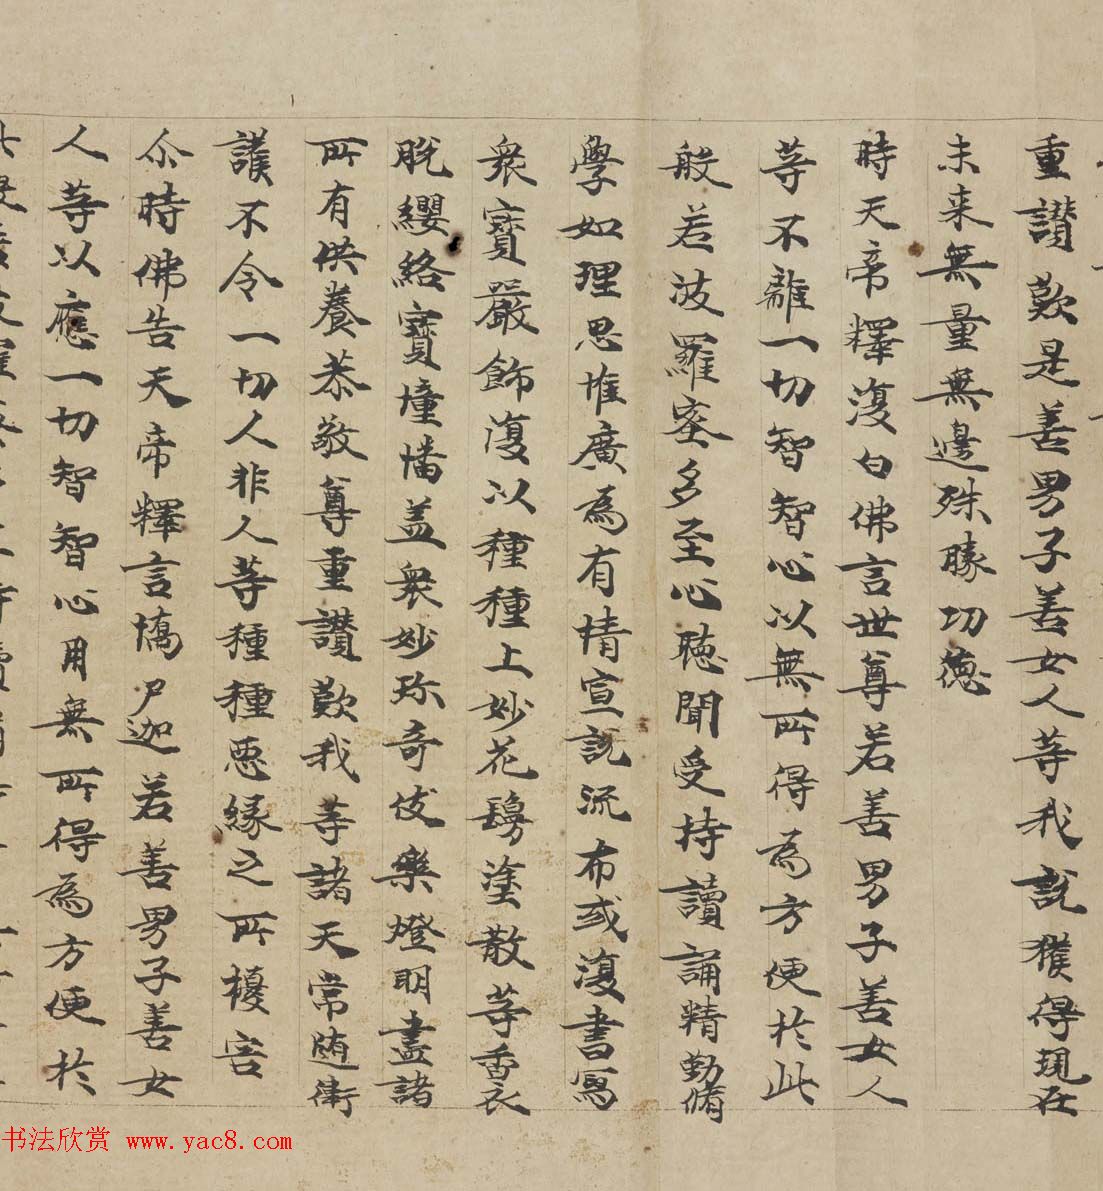 重讚歎是善男子善女人等我說獲得現在
未来無量無邊殊勝功德
時天帝釋復白佛言世尊若善男子善女人
等不離一切智智心以無所得為方便於此
般若波羅蜜多至心聽聞受持讀誦精勤脩
學如理思惟廣為有情宣說流布或復書寫
衆寶嚴飾復以種種上妙花鬘塗散等香衣
脫纓絡寶幢幡盖衆妙珎奇伎樂燈明盡諸
所有供養恭敬尊重讚歎我等諸天常随衛
護不令一切人非人等種種惡緣之所擾害
尒時佛告天帝釋言憍尸迦若善男子善女
人等以應一切智智心用無所得為方便於
书法欣赏 www.yac8.com